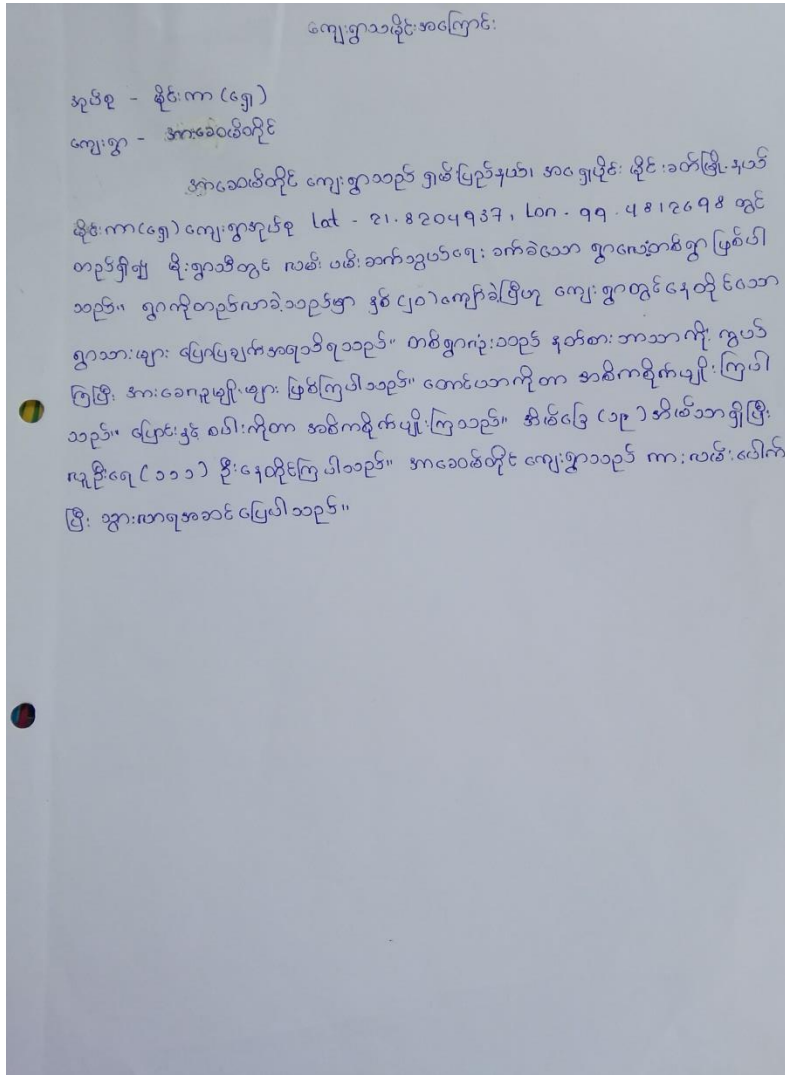 ကျေးရွာသမိုင်းအကြောင်း
အုပ်စု - မိုင်းကာ (ရှေ့)
ကျေးရွာ - အားခေဝမ်တိုင်
အာခေဝမ်တိုင် ကျေးရွာသည် ရှမ်းပြည်နယ်၊ အရှေ့ပိုင်း မိုင်းခတ်မြို့နယ်
မိုင်းကာ(ရှေ့) ကျေးရွာအုပ်စု Lat - 21.8204937, Lon - 99.4812698 တွင်
တည်ရှိ၍ မိုးရွာသီတွင် လမ်းပမ်းဆက်သွယ်ရေး ခက်ခဲသော ရွာလေးတစ်ရွာ ဖြစ်ပါ
သည်။ ရွာကိုတည်လာခဲ့သည်မှာ နှစ်(၂၀)ကျော်ခဲ့ပြီဟု ကျေးရွာတွင်နေထိုင်သော
ရွာသားများ ပြောပြချက်အရသိရသည်။ တစ်ရွာလုံးသည် နတ်စားဘာသာကိုး ကွယ်
ကြပြီး အားခေလူမျိုးများ ဖြစ်ကြပါသည်။ တောင်ယာကိုတာ အဓိကစိုက်ပျိုးကြပါ
သည်။ ပြောင်းနှင့် စပါးကိုတာ အဓိကစိုက်ပျိုးကြသည်။ အိမ်ခြေ (၁၉) အိမ်သာရှိပြီး
လူဦးရေ (၁၁၁) ဦးနေထိုင်ကြပါသည်။ အာခေဝမ်တိုင် ကျေးရွာသည် ကားလမ်းပေါက်
ပြီး သွားလာရအဆင်ပြေပါသည်။